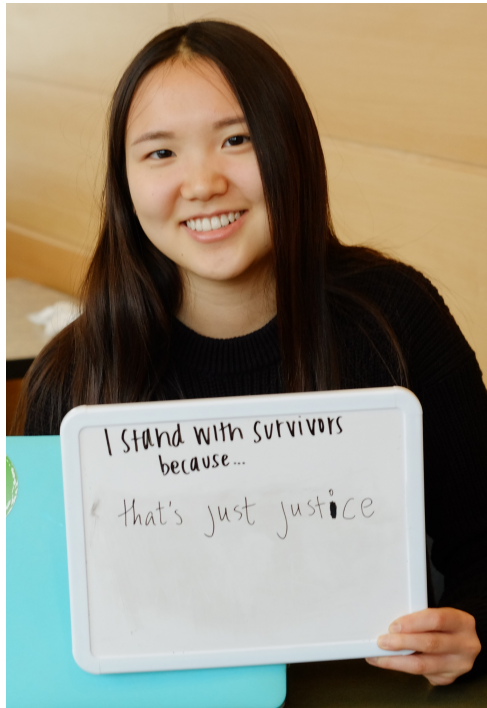 I stand with survivors
because...
that's just justice